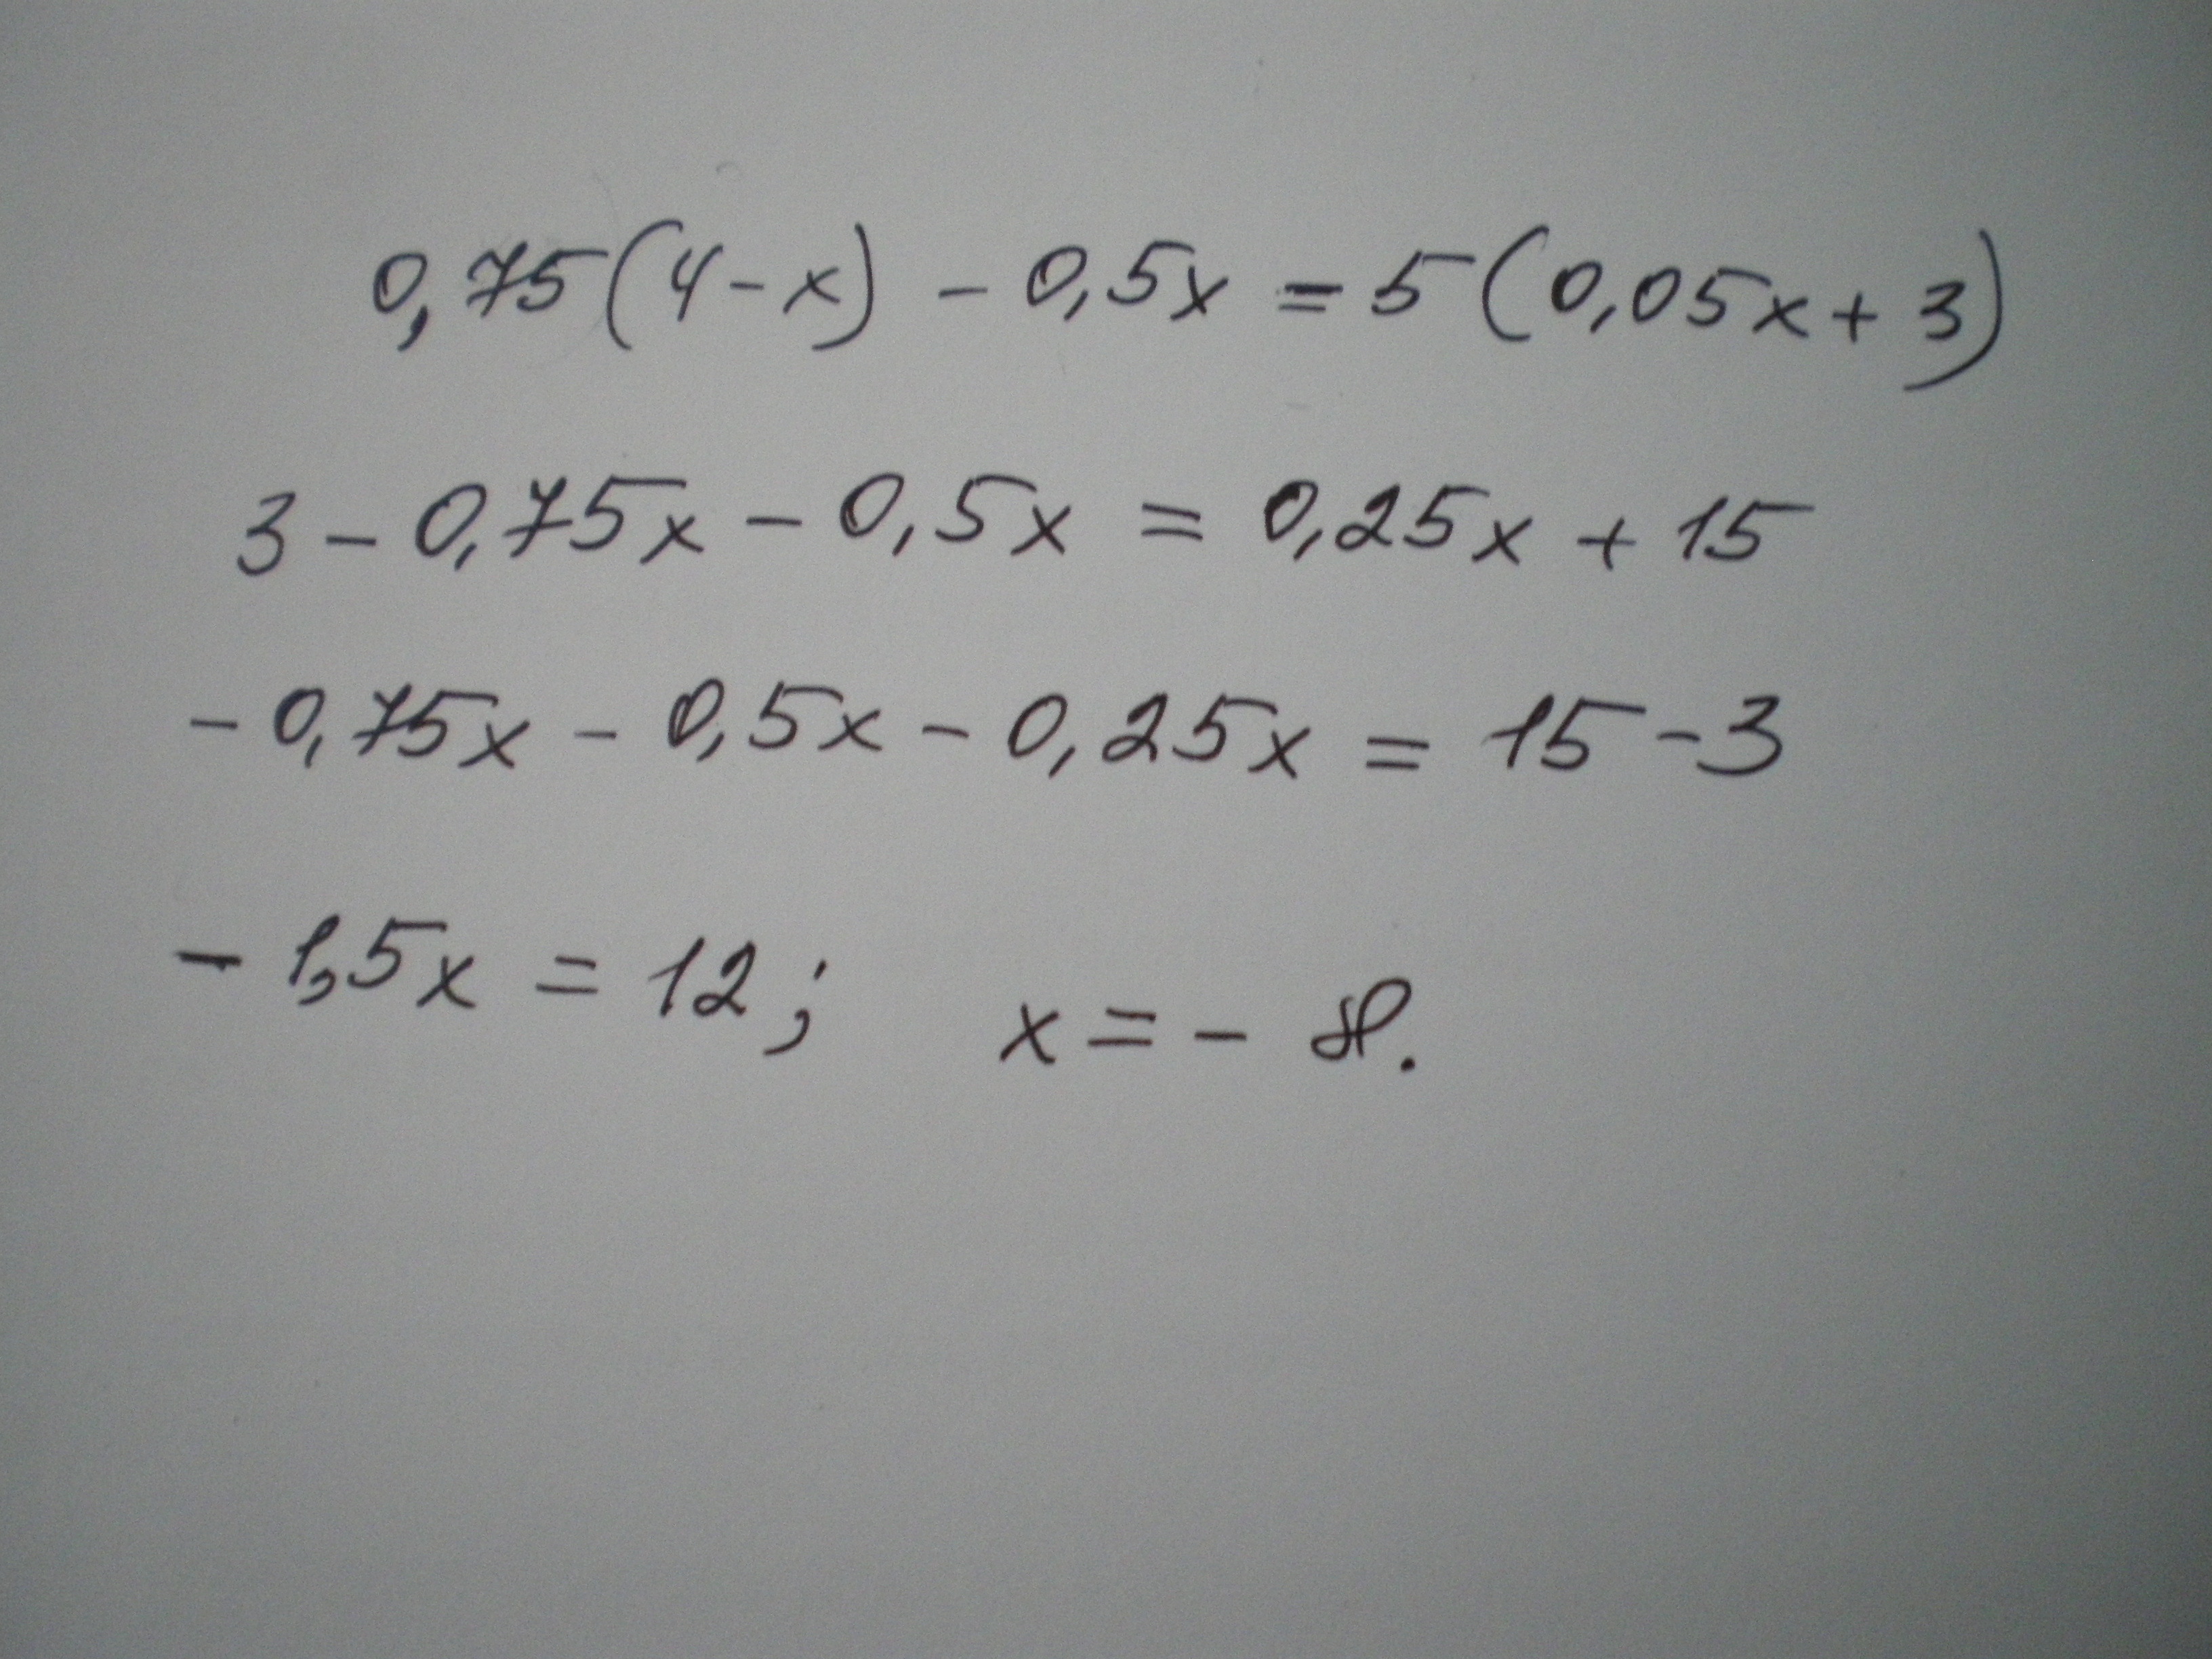 0,75(4-x) - 0,5x = 5(0,05x + 3)
3 - 0,75x - 0,5x = 0,25x + 15
- 0,75x - 0,5x - 0,25x = 15 - 3
- 1,5x = 12; x = - 8.